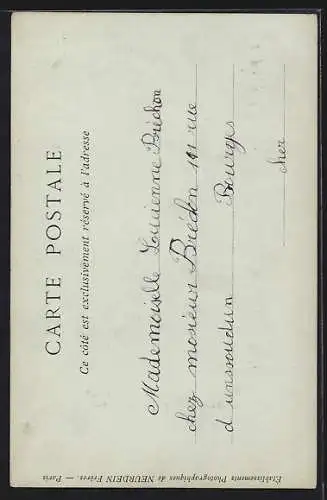 CARTE POSTALE
Ce côté est exclusivement réservé à l'adresse
Mademoiselle Lucienne Bréchon
chez mosieur Bréchon 111 rue
d'unssoudun Bourges
cher
Etablissements Photographiques de NEURDEIN Frères. — Paris